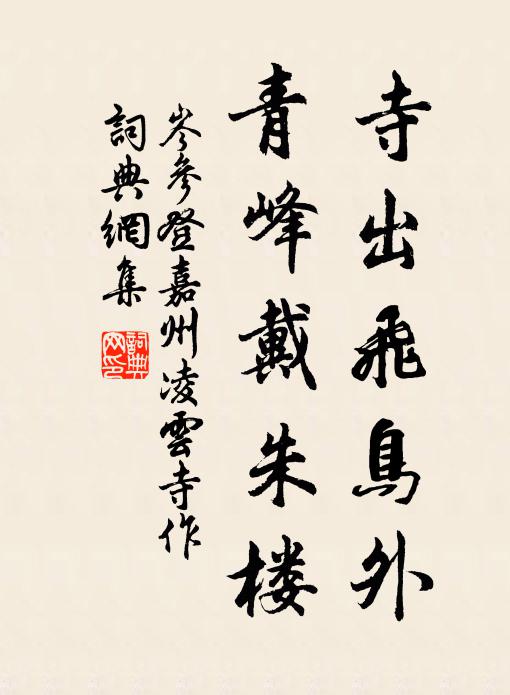 寺出飛鳥外
青峰戴朱楼
岑參登嘉州凌雲寺作
詞典網集
詞典网印